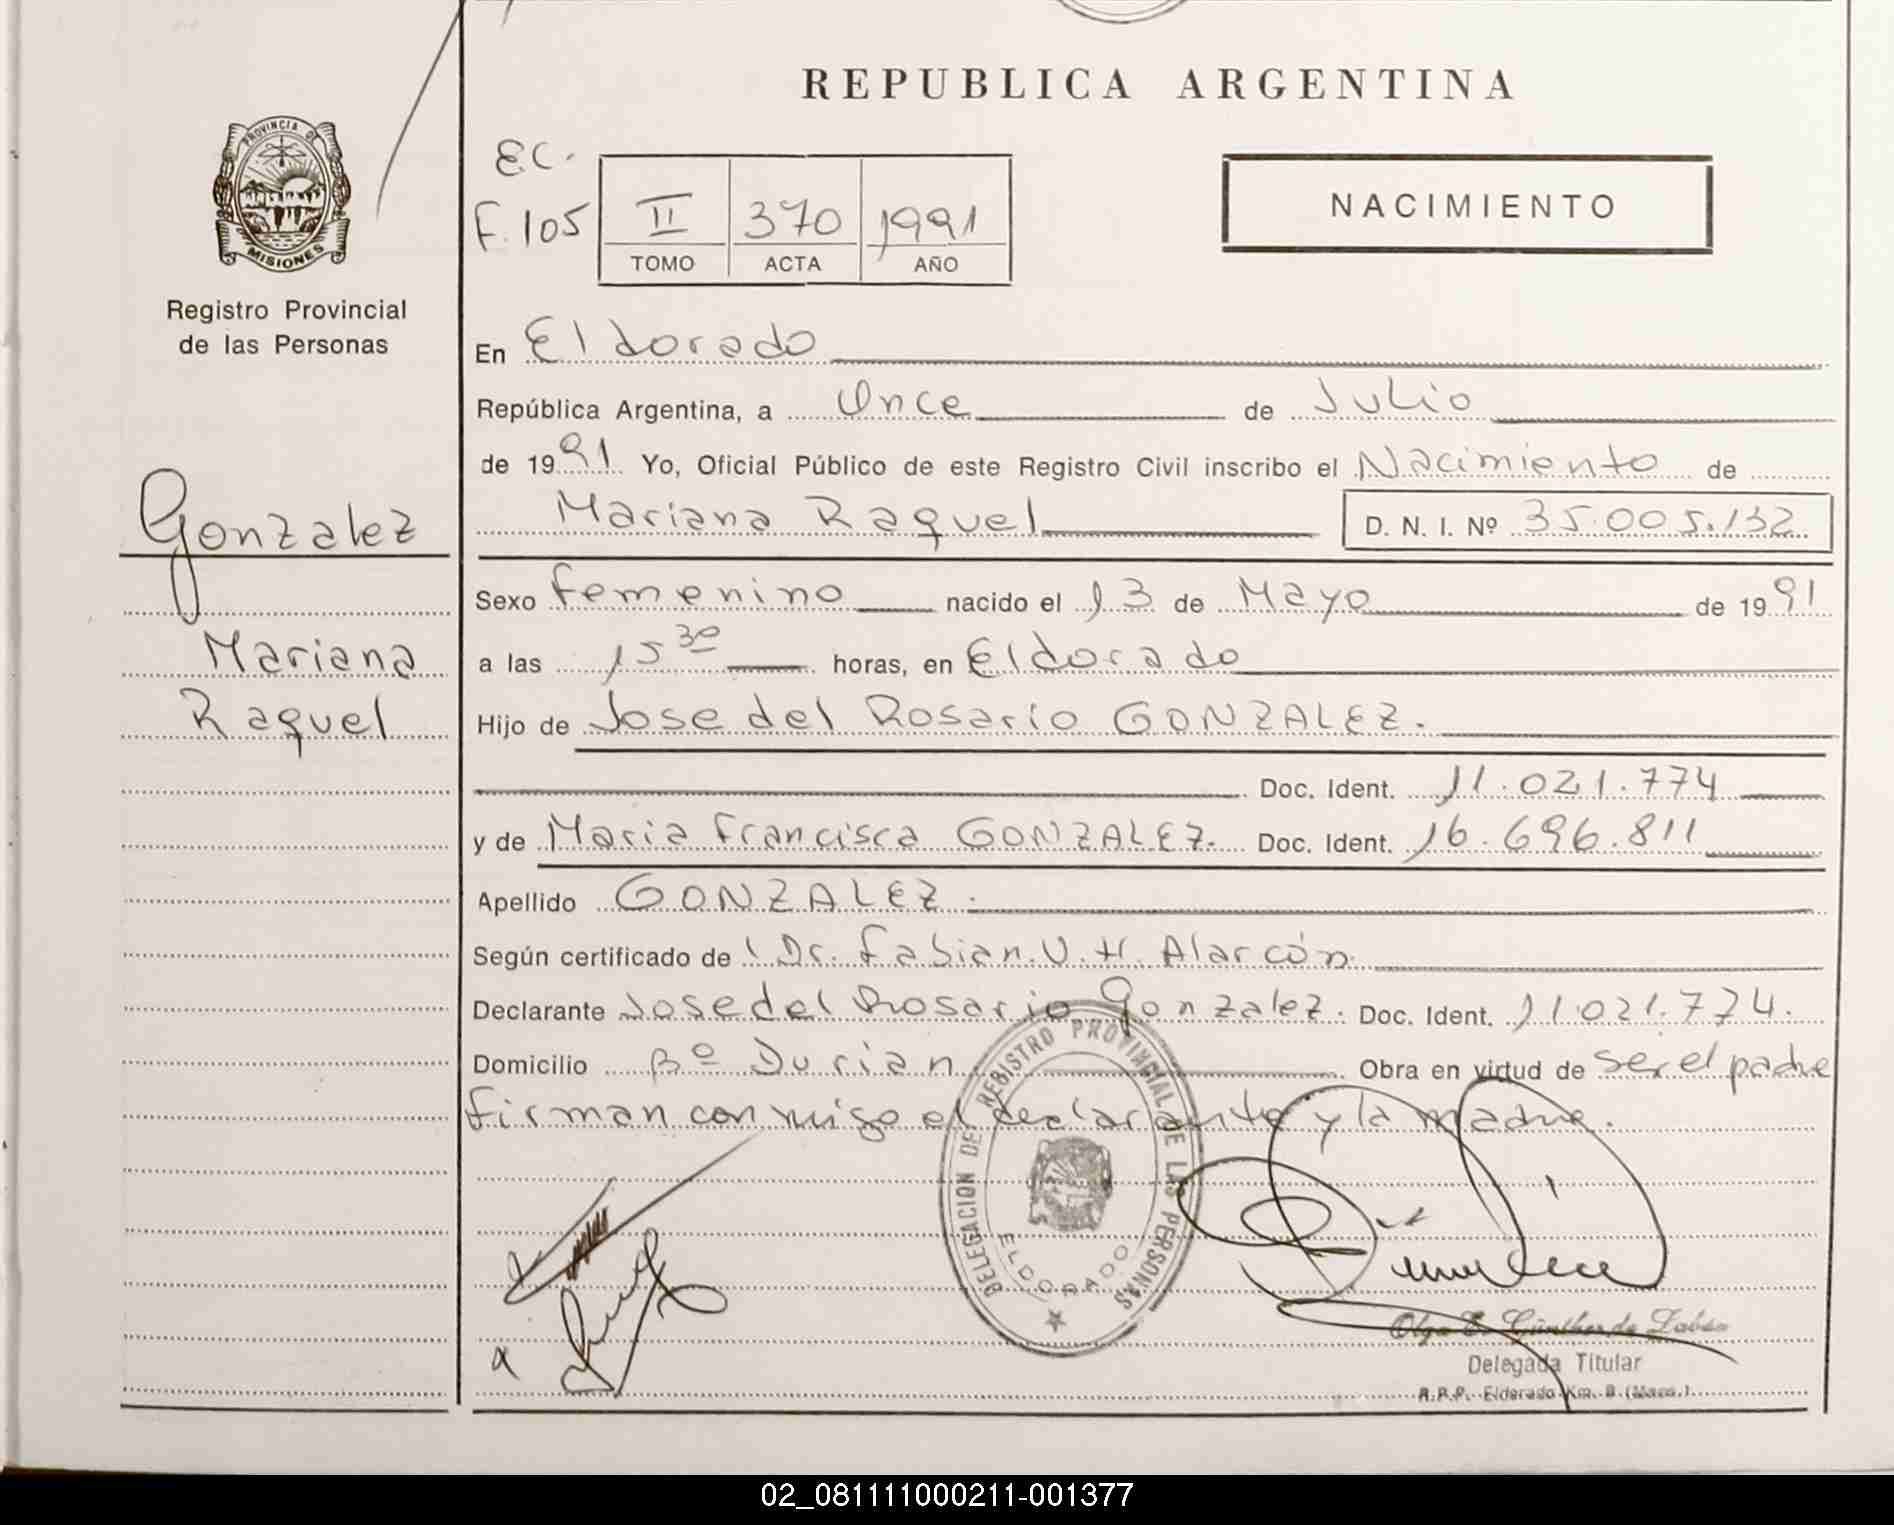 REPUBLICA ARGENTINA
PROVINCIA DE
MISIONES
Registro Provincial
de las Personas
EC.
F. 105
II 370 1991
TOMO ACTA AÑO
NACIMIENTO
En Eldorado
República Argentina, a Once de Julio
de 1991 Yo, Oficial Público de este Registro Civil inscribo el Nacimiento de
Mariana Raquel D. N. I. Nº 35.005.132
Gonzalez
Mariana
Raquel
Sexo femenino nacido el 13 de Mayo de 1991
a las 15 30 horas, en Eldorado
Hijo de Jose del Rosario GONZALEZ.
Doc. Ident. 11.021.774
y de Maria Francisca GONZALEZ. Doc. Ident. 16.696.811
Apellido GONZALEZ.
Según certificado de Dr. Fabian V. H. Alarcón
Declarante Jose del Rosario Gonzalez. Doc. Ident. 11.021.774.
Domicilio Bº Durian Obra en virtud de ser el padre
firman conmigo el declarante y la madre.
DELEGACION DE REGISTRO PROVINCIAL DE LAS PERSONAS
ELDORADO
Olga E. Günther de
Delegada Titular
R.P.P. Eldorado Km. 9
02_081111000211-001377